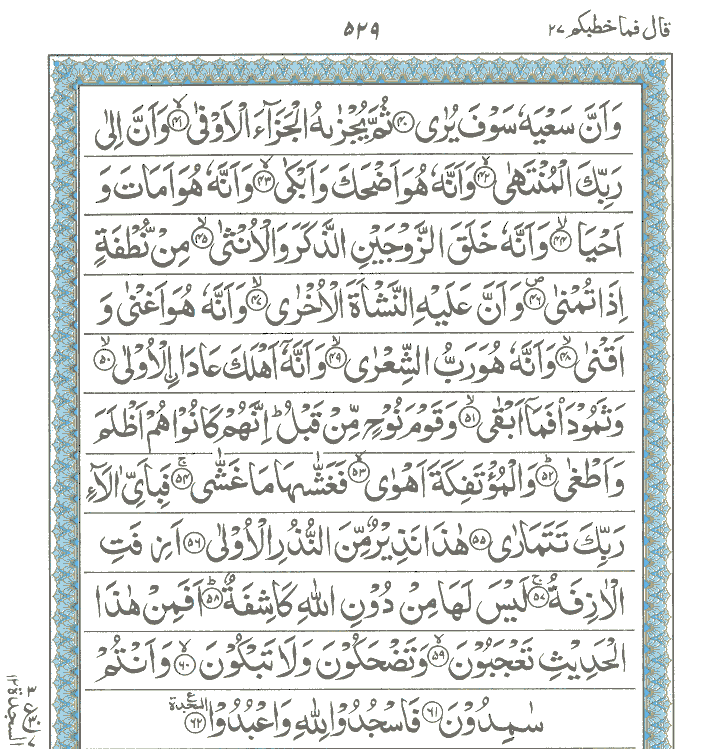 قال فما خطبكم ٢٧
٥٢٩
وَاَنَّ سَعْيَهٗ سَوْفَ يُرٰى ۝٤٠ ثُمَّ يُجْزٰىهُ الْجَزَآءَ الْاَوْفٰى ۙ۝٤١ وَاَنَّ اِلٰى
رَبِّكَ الْمُنْتَهٰى ۙ۝٤٢ وَاَنَّهٗ هُوَ اَضْحَكَ وَاَبْكٰى ۙ۝٤٣ وَاَنَّهٗ هُوَ اَمَاتَ وَ
اَحْيَا ۙ۝٤٤ وَاَنَّهٗ خَلَقَ الزَّوْجَيْنِ الذَّكَرَ وَالْاُنْثٰى ۙ۝٤٥ مِنْ نُّطْفَةٍ
اِذَا تُمْنٰى ۪۝٤٦ وَاَنَّ عَلَيْهِ النَّشْاَةَ الْاُخْرٰى ۙ۝٤٧ وَاَنَّهٗ هُوَ اَغْنٰى وَ
اَقْنٰى ۙ۝٤٨ وَاَنَّهٗ هُوَ رَبُّ الشِّعْرٰى ۙ۝٤٩ وَاَنَّهٗٓ اَهْلَكَ عَادَا اۨلْاُوْلٰى ۙ۝٥٠
وَثَمُوْدَا۟ فَمَآ اَبْقٰى ۙ۝٥١ وَقَوْمَ نُوْحٍ مِّنْ قَبْلُ ؕ اِنَّهُمْ كَانُوْا هُمْ اَظْلَمَ
وَاَطْغٰى ؕ۝٥٢ وَالْمُؤْتَفِكَةَ اَهْوٰى ۙ۝٥٣ فَغَشّٰىهَا مَا غَشّٰى ۚ۝٥٤ فَبِاَيِّ اٰلَآءِ
رَبِّكَ تَتَمَارٰى ۝٥٥ هٰذَا نَذِيْرٌ مِّنَ النُّذُرِ الْاُوْلٰى ۝٥٦ اَزِفَتِ
الْاٰزِفَةُ ۚ۝٥٧ لَيْسَ لَهَا مِنْ دُوْنِ اللّٰهِ كَاشِفَةٌ ؕ۝٥٨ اَفَمِنْ هٰذَا
الْحَدِيْثِ تَعْجَبُوْنَ ۙ۝٥٩ وَتَضْحَكُوْنَ وَلَا تَبْكُوْنَ ۙ۝٦٠ وَاَنْتُمْ
سٰمِدُوْنَ ۝٦١ فَاسْجُدُوْا لِلّٰهِ وَاعْبُدُوْا ۝٦٢ السجدة ع
السجدة ١٢